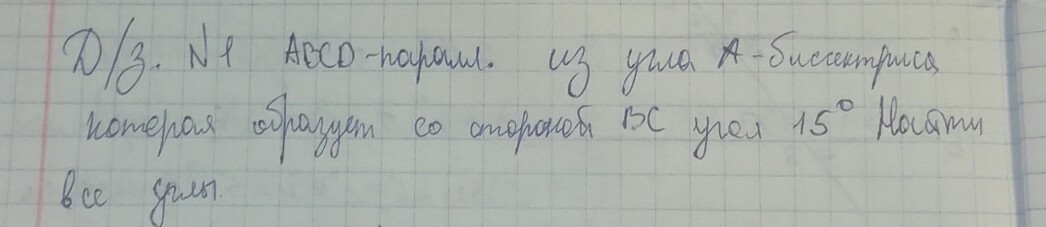 Д/з. №1 ABCD-парал. из угла А-биссектриса
которая образует со стороной BC угол 15° Найти
все углы.